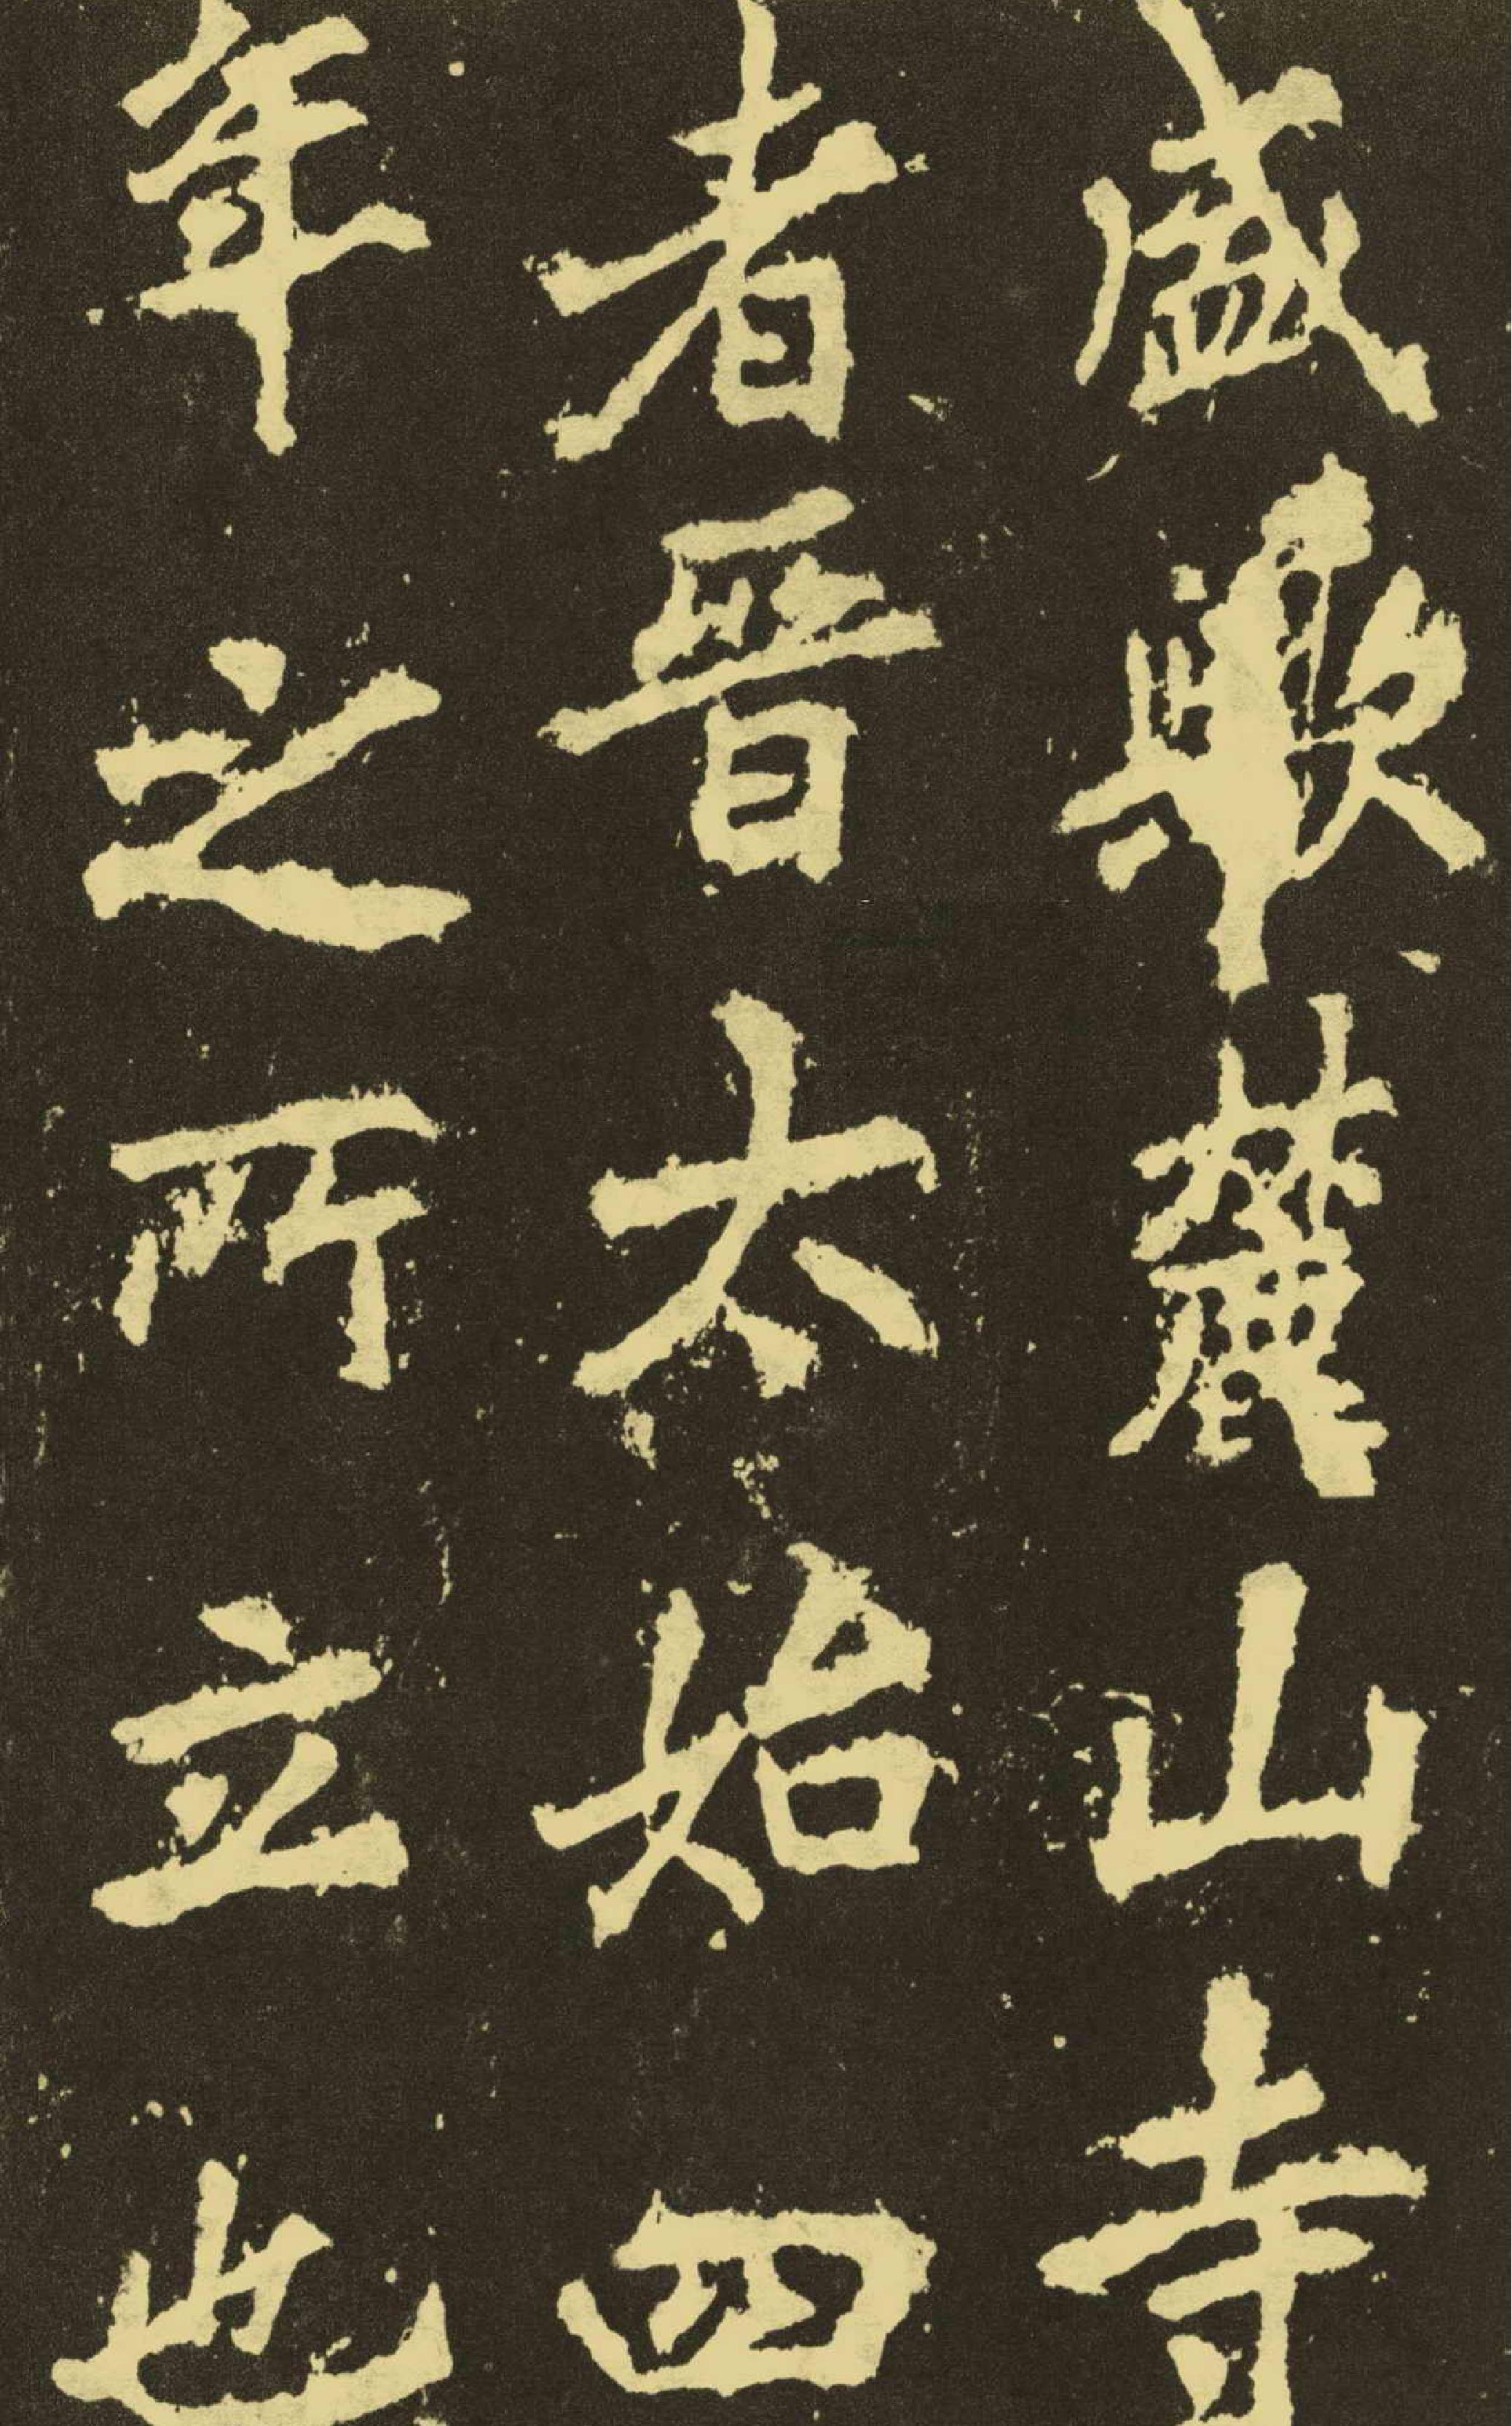 盛歟麓山寺
者晉太始四
年之所立也